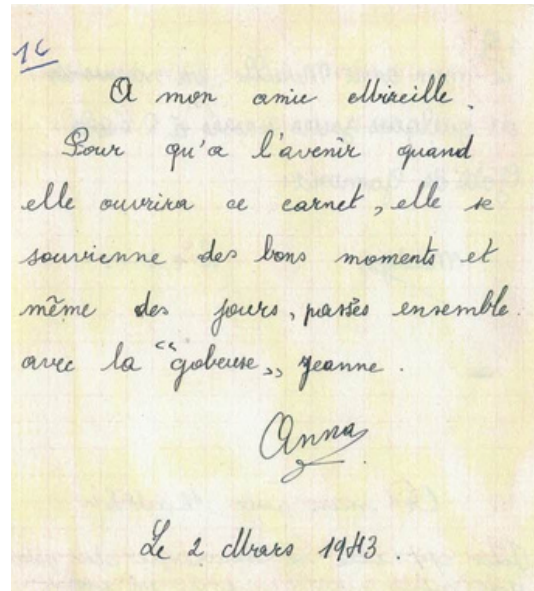 14
A mon amie Mireille.
Pour qu'a l'avenir quand
elle ouvrira ce carnet, elle se
souvienne des bons moments et
même des jours, passés ensemble
avec la "gobeuse" Jeanne.
Anna
Le 2 Mars 1943.